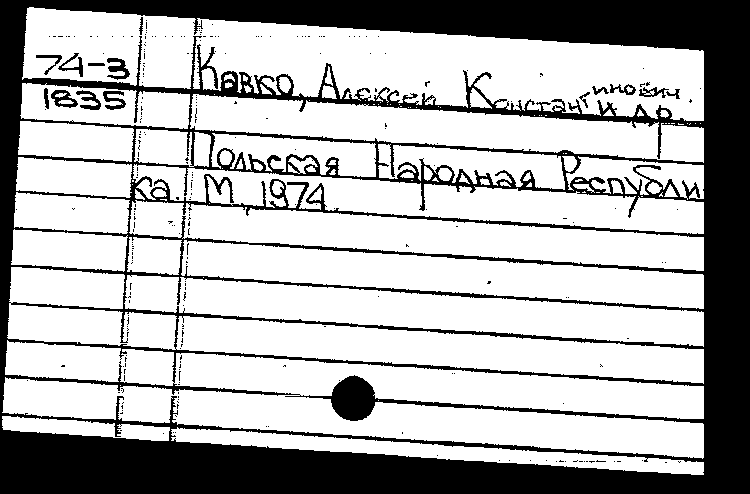 74-3
1835
Кавко, Алексей Константинович и др.
Польская Народная Республи
ка. М., 1974.